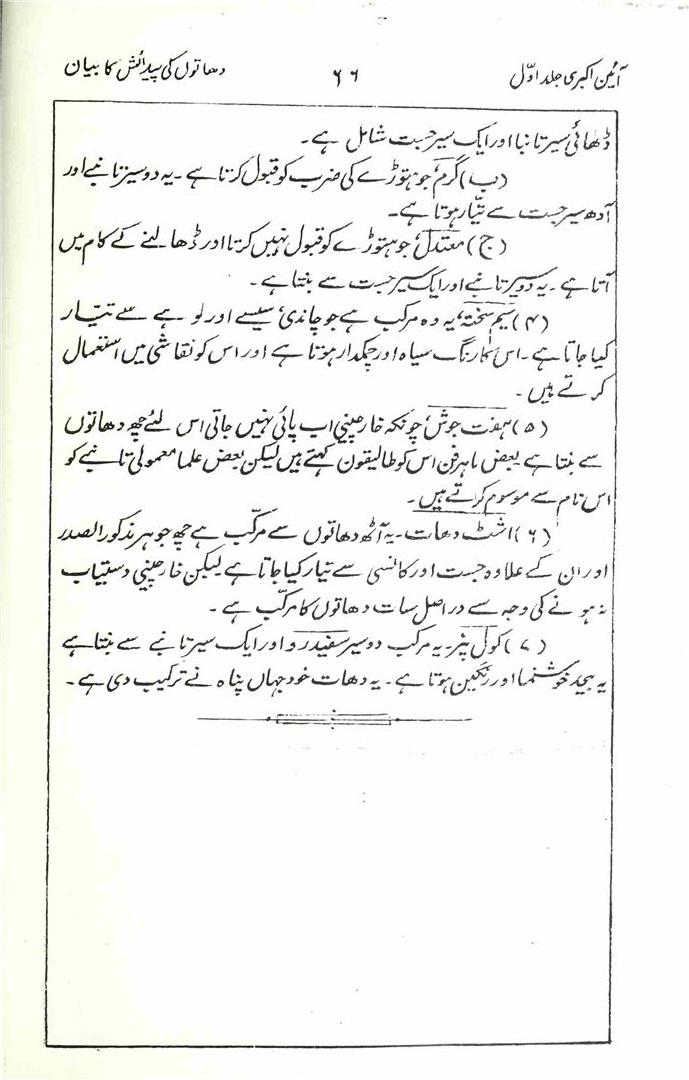 آئین اکبری جلد اوّل ۶۶ دھاتوں کی پیدائش کا بیان
ڈھائی سیر تانبا اور ایک سیر جست شامل ہے۔
(ب) گرم، جو ہتوڑے کی ضرب کو قبول کرتا ہے۔ یہ دو سیر تانبے اور
آدھ سیر جست سے تیّار ہوتا ہے۔
(ج) معتدل، جو ہتوڑے کو قبول نہیں کرتا اور ڈھالنے کے کام میں
آتا ہے۔ یہ دو سیر تانبے اور ایک سیر جست سے بنتا ہے۔
(۴) سیم سختہ، یہ وہ مرکب ہے جو چاندی، سیسے اور لوہے سے تیّار
کیا جاتا ہے۔ اس کا رنگ سیاہ اور چمکدار ہوتا ہے اور اس کو نقاشی میں استعمال
کرتے ہیں۔
(۵) ہفت جوش، چونکہ خارچینی اب پائی نہیں جاتی اس لئے چھ دھاتوں
سے بنتا ہے بعض ماہر فن اس کو طالیقون کہتے ہیں لیکن بعض علما معمولی تانبے کو
اس نام سے موسوم کرتے ہیں۔
(۶) اشٹ دھات۔ یہ آٹھ دھاتوں سے مرکّب ہے چھ جوہر مذکور الصدر
اور ان کے علاوہ جست اور کانسی سے تیار کیا جاتا ہے لیکن خارچینی دستیاب
نہ ہونے کی وجہ سے دراصل سات دھاتوں کا مرکّب ہے۔
(۷) کول پتر۔ یہ مرکب دو سیر سفیدرو اور ایک سیر تانبے سے بنتا ہے
یہ بیحد خوشنما اور رنگین ہوتا ہے۔ یہ دھات خود جہاں پناہ نے ترکیب دی ہے۔